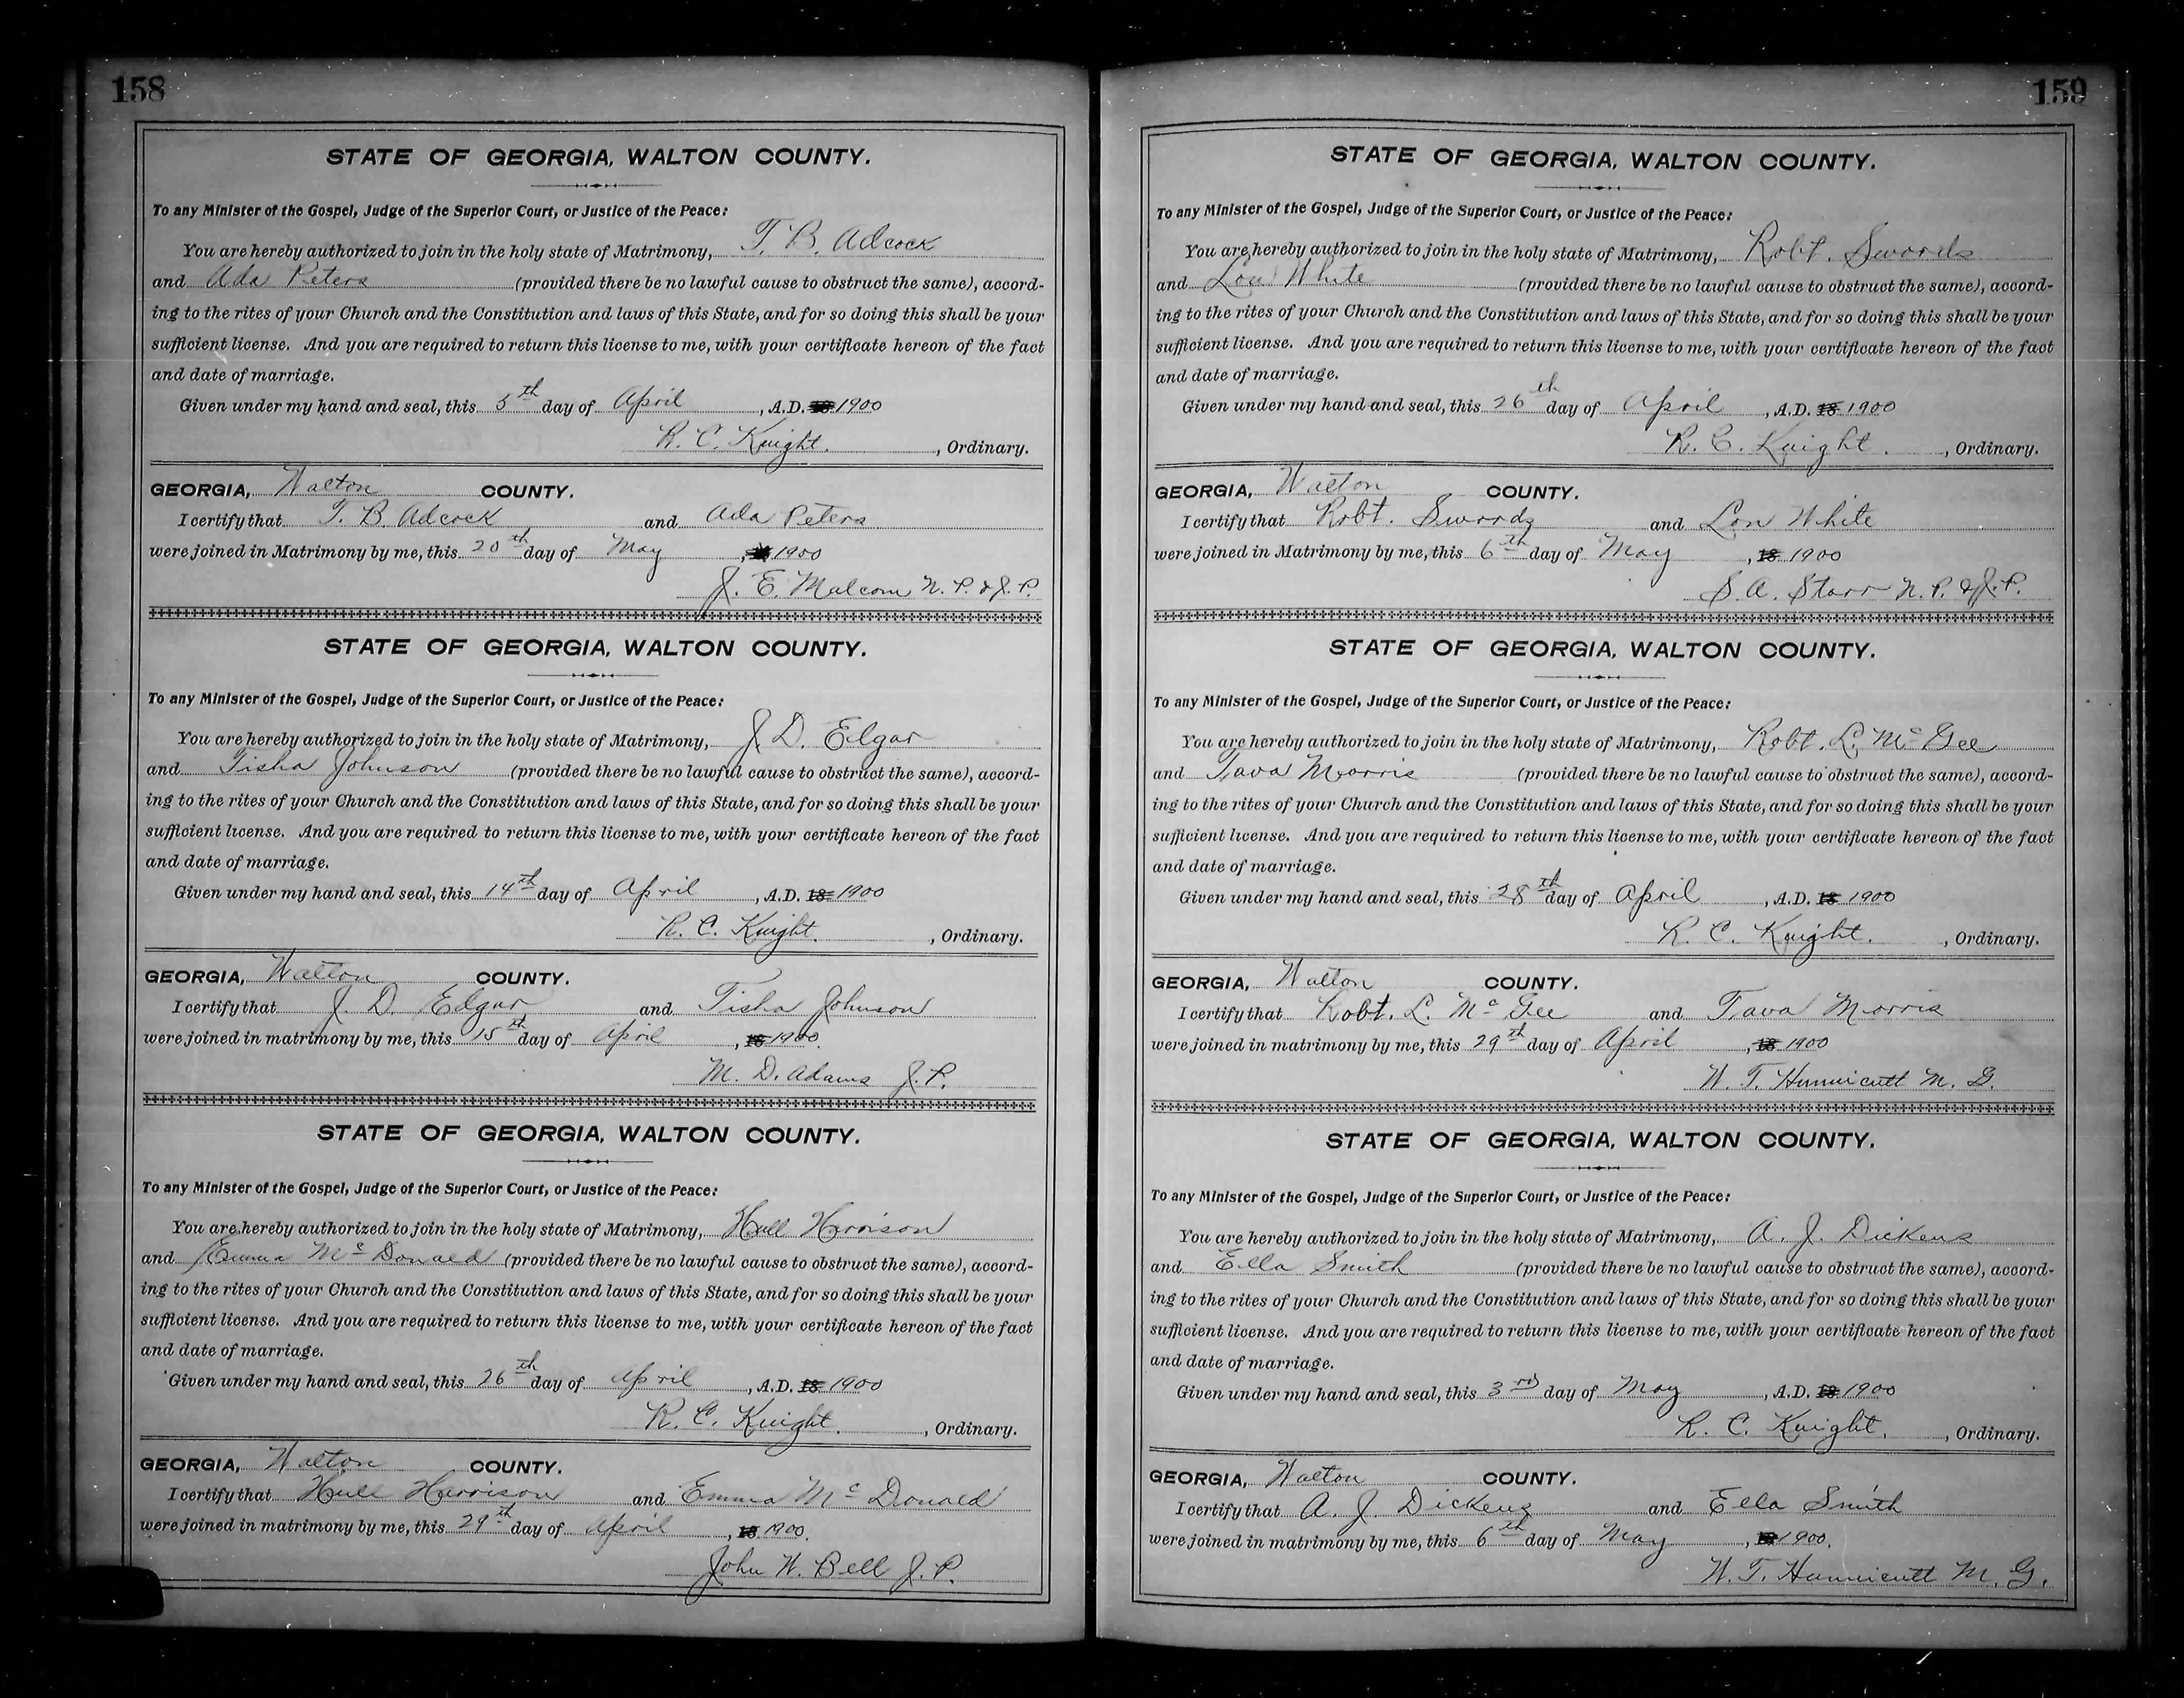 158
STATE OF GEORGIA, WALTON COUNTY.
To any Minister of the Gospel, Judge of the Superior Court, or Justice of the Peace:
You are hereby authorized to join in the holy state of Matrimony, T. B. Adcock
and Ada Peters (provided there be no lawful cause to obstruct the same), accord-
ing to the rites of your Church and the Constitution and laws of this State, and for so doing this shall be your
sufficient license. And you are required to return this license to me, with your certificate hereon of the fact
and date of marriage.
Given under my hand and seal, this 5th day of April, A.D. 18 1900
R. C. Knight, Ordinary.
GEORGIA, Walton COUNTY.
I certify that T. B. Adcock and Ada Peters
were joined in Matrimony by me, this 20th day of May, 18 1900
J. E. Malcom N. P. & J. P.
STATE OF GEORGIA, WALTON COUNTY.
To any Minister of the Gospel, Judge of the Superior Court, or Justice of the Peace:
You are hereby authorized to join in the holy state of Matrimony, J. D. Elgar
and Tisha Johnson (provided there be no lawful cause to obstruct the same), accord-
ing to the rites of your Church and the Constitution and laws of this State, and for so doing this shall be your
sufficient license. And you are required to return this license to me, with your certificate hereon of the fact
and date of marriage.
Given under my hand and seal, this 14th day of April, A.D. 18 1900
R. C. Knight, Ordinary.
GEORGIA, Walton COUNTY.
I certify that J. D. Edgar and Tisha Johnson
were joined in matrimony by me, this 15th day of April, 18 1900.
M. D. Adams J. P.
STATE OF GEORGIA, WALTON COUNTY.
To any Minister of the Gospel, Judge of the Superior Court, or Justice of the Peace:
You are hereby authorized to join in the holy state of Matrimony, Hull Harrison
and Emma McDonald (provided there be no lawful cause to obstruct the same), accord-
ing to the rites of your Church and the Constitution and laws of this State, and for so doing this shall be your
sufficient license. And you are required to return this license to me, with your certificate hereon of the fact
and date of marriage.
Given under my hand and seal, this 26th day of April, A.D. 18 1900
R. C. Knight, Ordinary.
GEORGIA, Walton COUNTY.
I certify that Hull Harrison and Emma McDonald
were joined in matrimony by me, this 29th day of April, 18 1900.
John W. Bell J. P.
159
STATE OF GEORGIA, WALTON COUNTY.
To any Minister of the Gospel, Judge of the Superior Court, or Justice of the Peace:
You are hereby authorized to join in the holy state of Matrimony, Robt. Swords
and Lou White (provided there be no lawful cause to obstruct the same), accord-
ing to the rites of your Church and the Constitution and laws of this State, and for so doing this shall be your
sufficient license. And you are required to return this license to me, with your certificate hereon of the fact
and date of marriage.
Given under my hand and seal, this 26th day of April, A.D. 18 1900
R. C. Knight, Ordinary.
GEORGIA, Walton COUNTY.
I certify that Robt. Swords and Lou White
were joined in Matrimony by me, this 6th day of May, 18 1900
S. A. Starr N. P. & J. P.
STATE OF GEORGIA, WALTON COUNTY.
To any Minister of the Gospel, Judge of the Superior Court, or Justice of the Peace:
You are hereby authorized to join in the holy state of Matrimony, Robt. L. McGee
and Tava Morris (provided there be no lawful cause to obstruct the same), accord-
ing to the rites of your Church and the Constitution and laws of this State, and for so doing this shall be your
sufficient license. And you are required to return this license to me, with your certificate hereon of the fact
and date of marriage.
Given under my hand and seal, this 28th day of April, A.D. 18 1900
R. C. Knight, Ordinary.
GEORGIA, Walton COUNTY.
I certify that Robt. L. McGee and Tava Morris
were joined in matrimony by me, this 29th day of April, 18 1900
W. T. Hunnicutt M. G.
STATE OF GEORGIA, WALTON COUNTY.
To any Minister of the Gospel, Judge of the Superior Court, or Justice of the Peace:
You are hereby authorized to join in the holy state of Matrimony, A. J. Dickens
and Ella Smith (provided there be no lawful cause to obstruct the same), accord-
ing to the rites of your Church and the Constitution and laws of this State, and for so doing this shall be your
sufficient license. And you are required to return this license to me, with your certificate hereon of the fact
and date of marriage.
Given under my hand and seal, this 3rd day of May, A.D. 18 1900
R. C. Knight, Ordinary.
GEORGIA, Walton COUNTY.
I certify that A. J. Dickens and Ella Smith
were joined in matrimony by me, this 6th day of May, 18 1900.
W. T. Hunnicutt M. G.